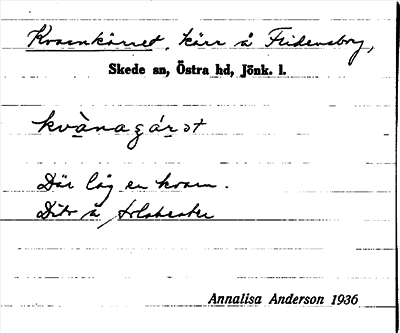 Kvarnkärret, kärr å Fridensborg,
Skede sn, Östra hd, Jönk. l.
kvànagárət
Där låg en kvarn.
Dito å
Annalisa Anderson 1936